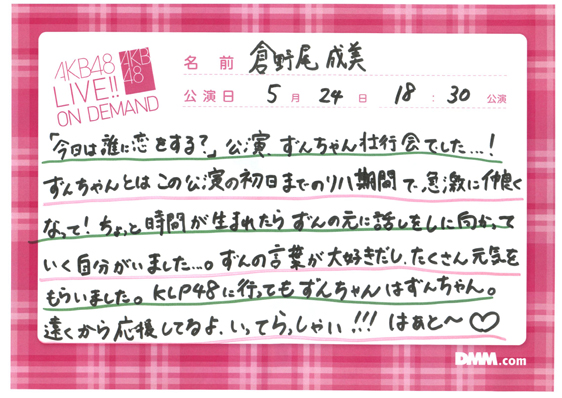 AKB48
LIVE!!
ON DEMAND
AKB
48
名前 倉野尾成美
公演日 5月24日 18:30公演
「今日は誰に恋をする?」公演、ずんちゃん壮行会でした…!
ずんちゃんとはこの公演の初日までのリハ期間で、急激に仲良く
なって!ちょっと時間が生まれたらずんの元に話しをしに向かって
いく自分がいました…。ずんの言葉が大好きだし、たくさん元気を
もらいました。KLP48に行ってもずんちゃんはずんちゃん。
遠くから応援してるよ、いってらっしゃい!!! はぁと〜♡
DMM.com